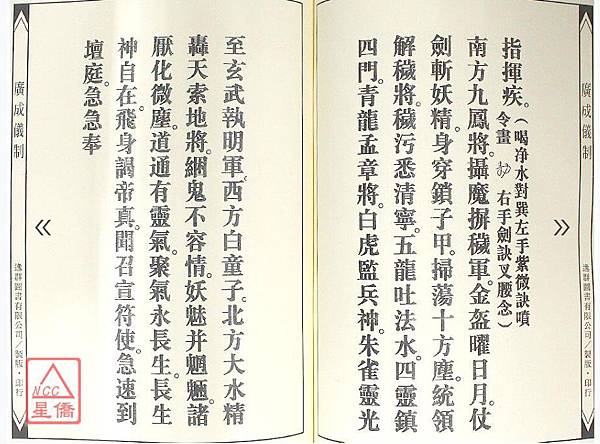 廣成儀制
指揮疾。(喝淨水對巽左手紫微訣噴
令畫 右手劍訣叉腰念)
南方九鳳將。攝魔摒穢軍。金盔曜日月。仗
劍斬妖精。身穿鎖子甲。掃蕩十方塵。統領
解穢將。穢污悉清寧。五龍吐法水。四靈鎮
四門。青龍孟章將。白虎監兵神。朱雀靈光
逸群圖書有限公司/製版·印行
至玄武執明軍。西方白童子。北方大水精
轟天索地將。綑鬼不容情。妖魅并魍魎。諸
厭化微塵。道通有靈氣。聚氣永長生。長生
神自在。飛身謁帝真。聞召宣符使。急速到
壇庭。急急奉
廣成儀制
逸群圖書有限公司/製版·印行
NCC
星僑